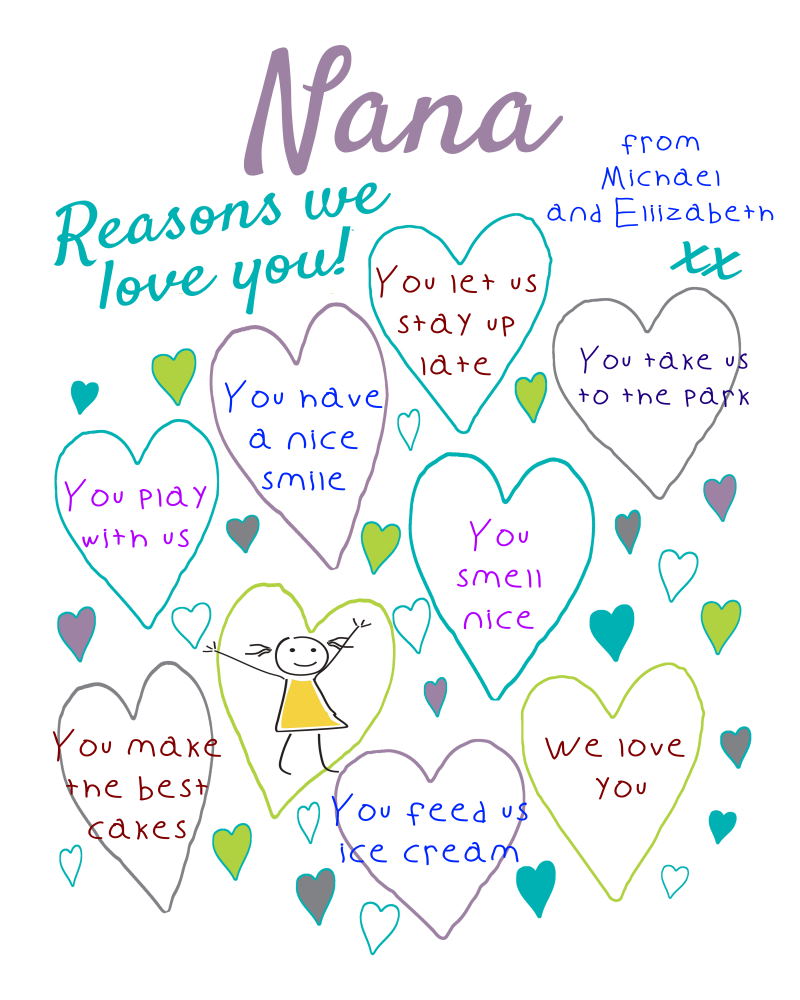 Nana
from
Michael
and Eliizabeth
xx
Reasons we
love you!
You let us
stay up
late
You take us
to the park
You have
a nice
smile
You play
with us
You
smell
nice
You make
the best
cakes
We love
you
You feed us
ice cream